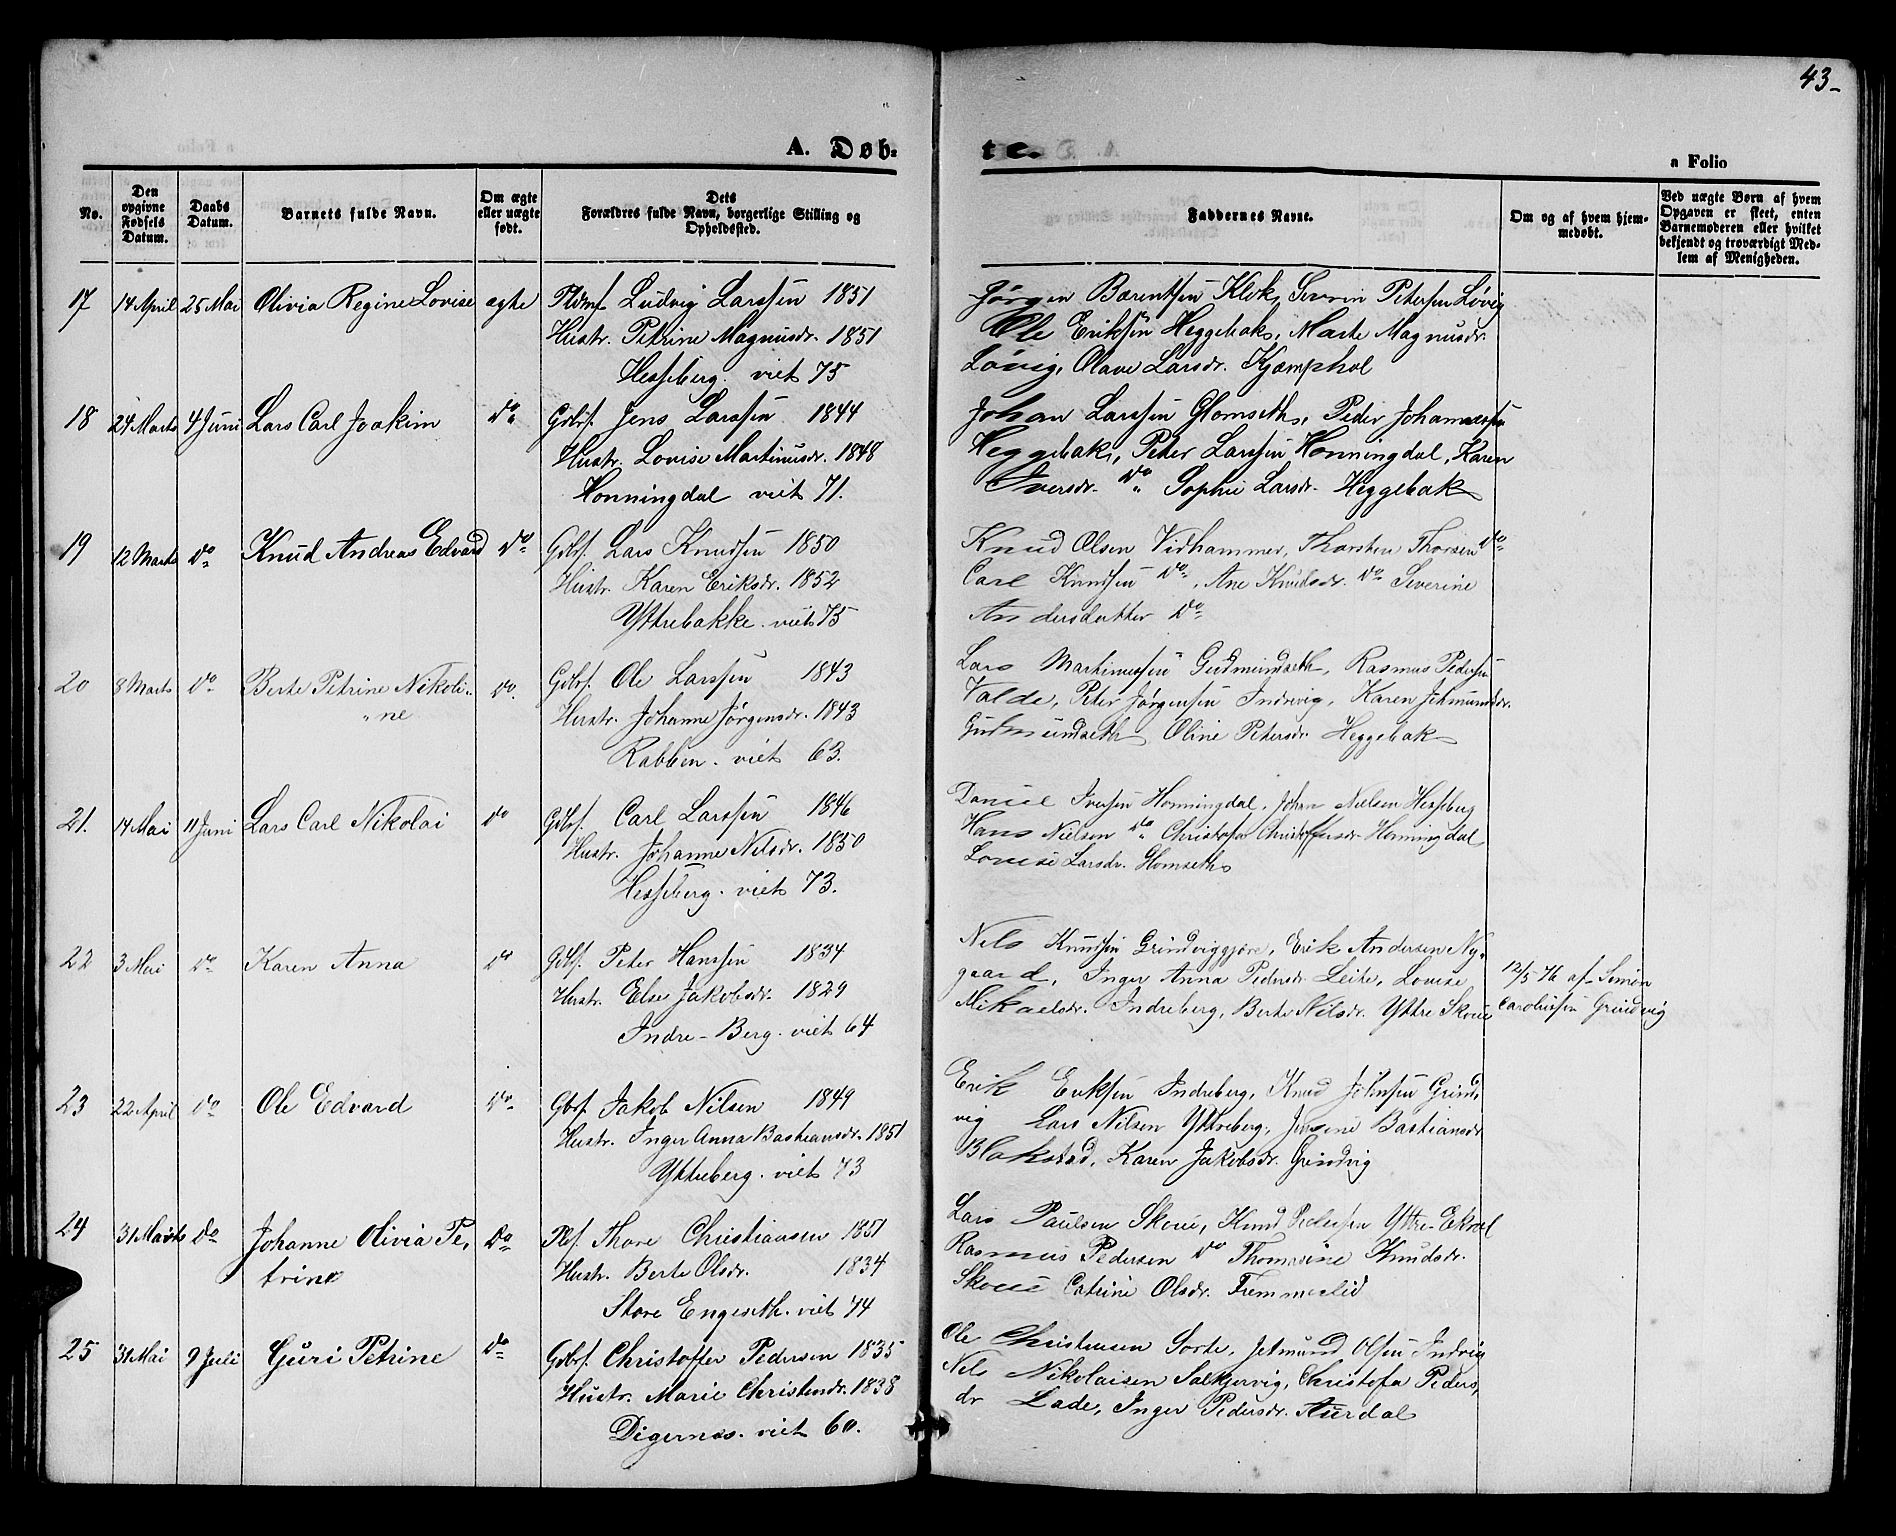 43-
A. Døb-
te.
a Folio
No.
Den opgivne Fødsels Datum.
Daabs Datum.
Barnets fulde Navn.
Om ægte eller uægte født.
Dets Forældres fulde Navn, borgerlige Stilling og Opholdssted.
Faddernes Navne.
Om og af hvem hjemmedøbt.
Ved uægte Børn af hvem Opgaven er skeet, enten Barnemoderen eller hvilket bekjendt og troværdigt Medlem af Menigheden.
17 14 April 25 Mai Olivia Regine Lovise ægte Ludvig Larssen 1851
Hustr. Petrine Magnusdr. 1851
Hesseberg. viet 75
Jørgen Barentsen Klok, Severin Petersen Løvig
Ole Eriksen Heggebak, Marte Magnusdr.
Løvig, Olave Larsdr. Kjæmphol
18 24 Marts 4 Juni Lars Carl Joakim do Gdbf. Jens Larssen 1844
Hustr. Lovise Martinusdr. 1848
Honningdal viet 71.
Johan Larssen Glomseth, Peder Johannessen
Heggebak, Peter Larssen Honningdal, Karen
Iversdr. do Sophie Larsdr. Heggebak
19 12 Marts do Knud Andreas Edvard do Gdbf. Lars Knudsen 1850
Hustr. Karen Eriksdr. 1852
Yttrebakke. viet 75
Knud Olsen Vidhammer, Thorsten Thorsen do
Carl Knudsen do, Ane Knudsdr. do Severine
Andersdatter do
20 8 Marts do Berte Petrine Nikoli- do. Gdbf. Ole Larssen 1843
ne
Hustr. Johanne Jørgensdr. 1843
Rabben. viet 63.
Lars Martinussen Gudmundseth, Rasmus Pedersen
Valde, Peter Jørgensen Indrevig, Karen Jetmundsdr.
Gudmundseth, Oline Petersdr. Heggebak
21. 14 Mai 11 Juni Lars Carl Nikolai do Gdbf. Carl Larssen 1846
Hustr. Johanne Nilsdr. 1850
Hesseberg. viet 73.
Daniel Iversen Honningdal, Johan Nielsen Hesseberg
Hans Nielsen do Christofa Christoffersdr. Honningdal
Lovise Larsdr. Glomseth
22 3 Mai do Karen Anna do Gdbf. Peter Hanssen 1834
Hustr. Else Jakobsdr. 1829
Indre-Berg. viet 64
Nels Knutsen Grindviggjære, Erik Andersen Ny-
gaard, Inger Anna Pedersdr. Leite, Lovise
Mikaelsdr. Indreberg, Berte Nilsdr. Yttre Skoue
12/5 76 af Simon
Carolussen Grindvig
23 22 April do Ole Edvard do Gbrf. Jakob Nilsen 1849
Hustr. Inger Anna Bastiansdr. 1851
Yttreberg. viet 73
Erik Eriksen Indreberg, Knud Johnsen Grind-
vig Lars Nilsen Yttreberg, Jensine Bastiansdr
Blakstad, Karen Jakobsdr. Grindvig
24 31 Marts do Johanne Olivia Pe- do Plf. Thore Christiansen 1851
trine
Hustr. Berte Olsdr. 1834
Store Engeseth. viet 74
Lars Paulsen Skoue, Knud Pedersen Yttre-Ekroll
Rasmus Pedersen do Thomasine Knudsdr.
Skoue Catrine Olsdr. Fremmerlid
25 31 Mai 9 Juli Guri Petrine do Gdbrf. Christoffer Pedersen 1835
Hustr. Marie Christensdr. 1838
Digernes. viet 60.
Ole Christensen Sorte, Jetmund Olsen Indrvig
Nels Nikolaisen Solkjervig, Christofa Peders-
dr Lade, Inger Pedersdr. Aurdal